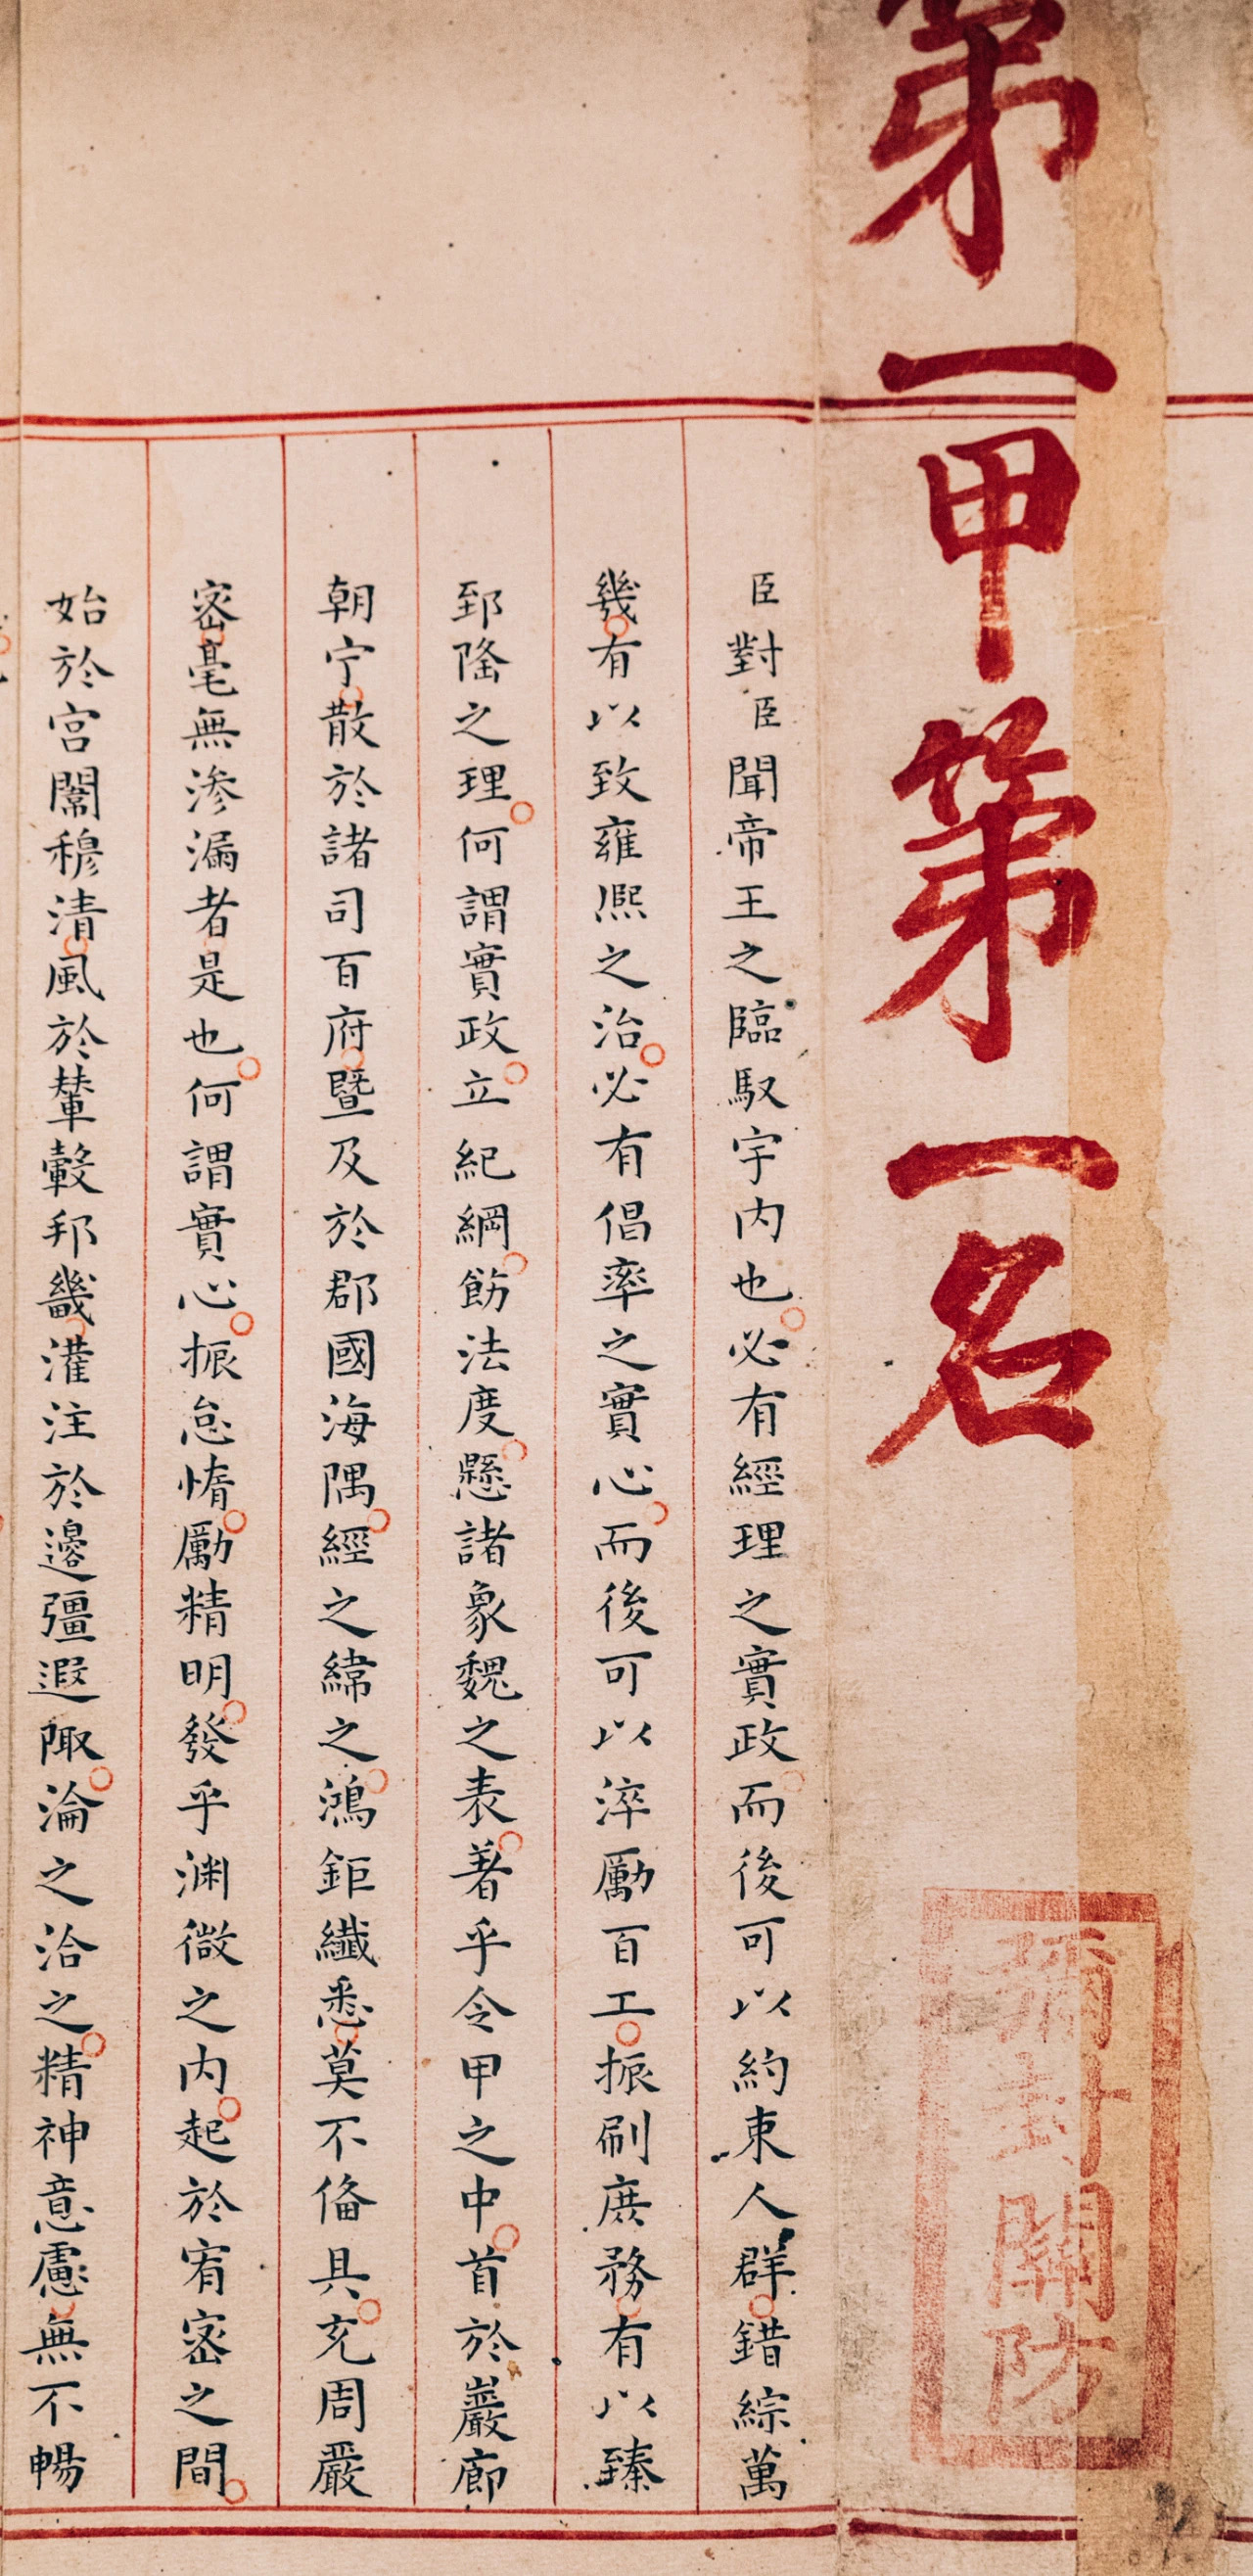 第一甲第一名
彌封關防
臣對臣聞帝王之臨馭宇内也必有經理之實政而後可以約束人群錯綜萬
幾有以致雍熙之治必有倡率之實心而後可以淬勵百工振刷庶務有以臻
郅隆之理何謂實政立紀綱飭法度懸諸象魏之表著乎令甲之中首於巖廊
朝宁散於諸司百府暨及於郡國海隅經之緯之鴻鉅纖悉莫不俻具充周嚴
密毫無滲漏者是也何謂實心振怠惰勵精明發乎渊微之内起於宥密之間
始於宫闈穆清風於輦轂邦畿灌注於邊疆遐陬淪之洽之精神意慮無不暢